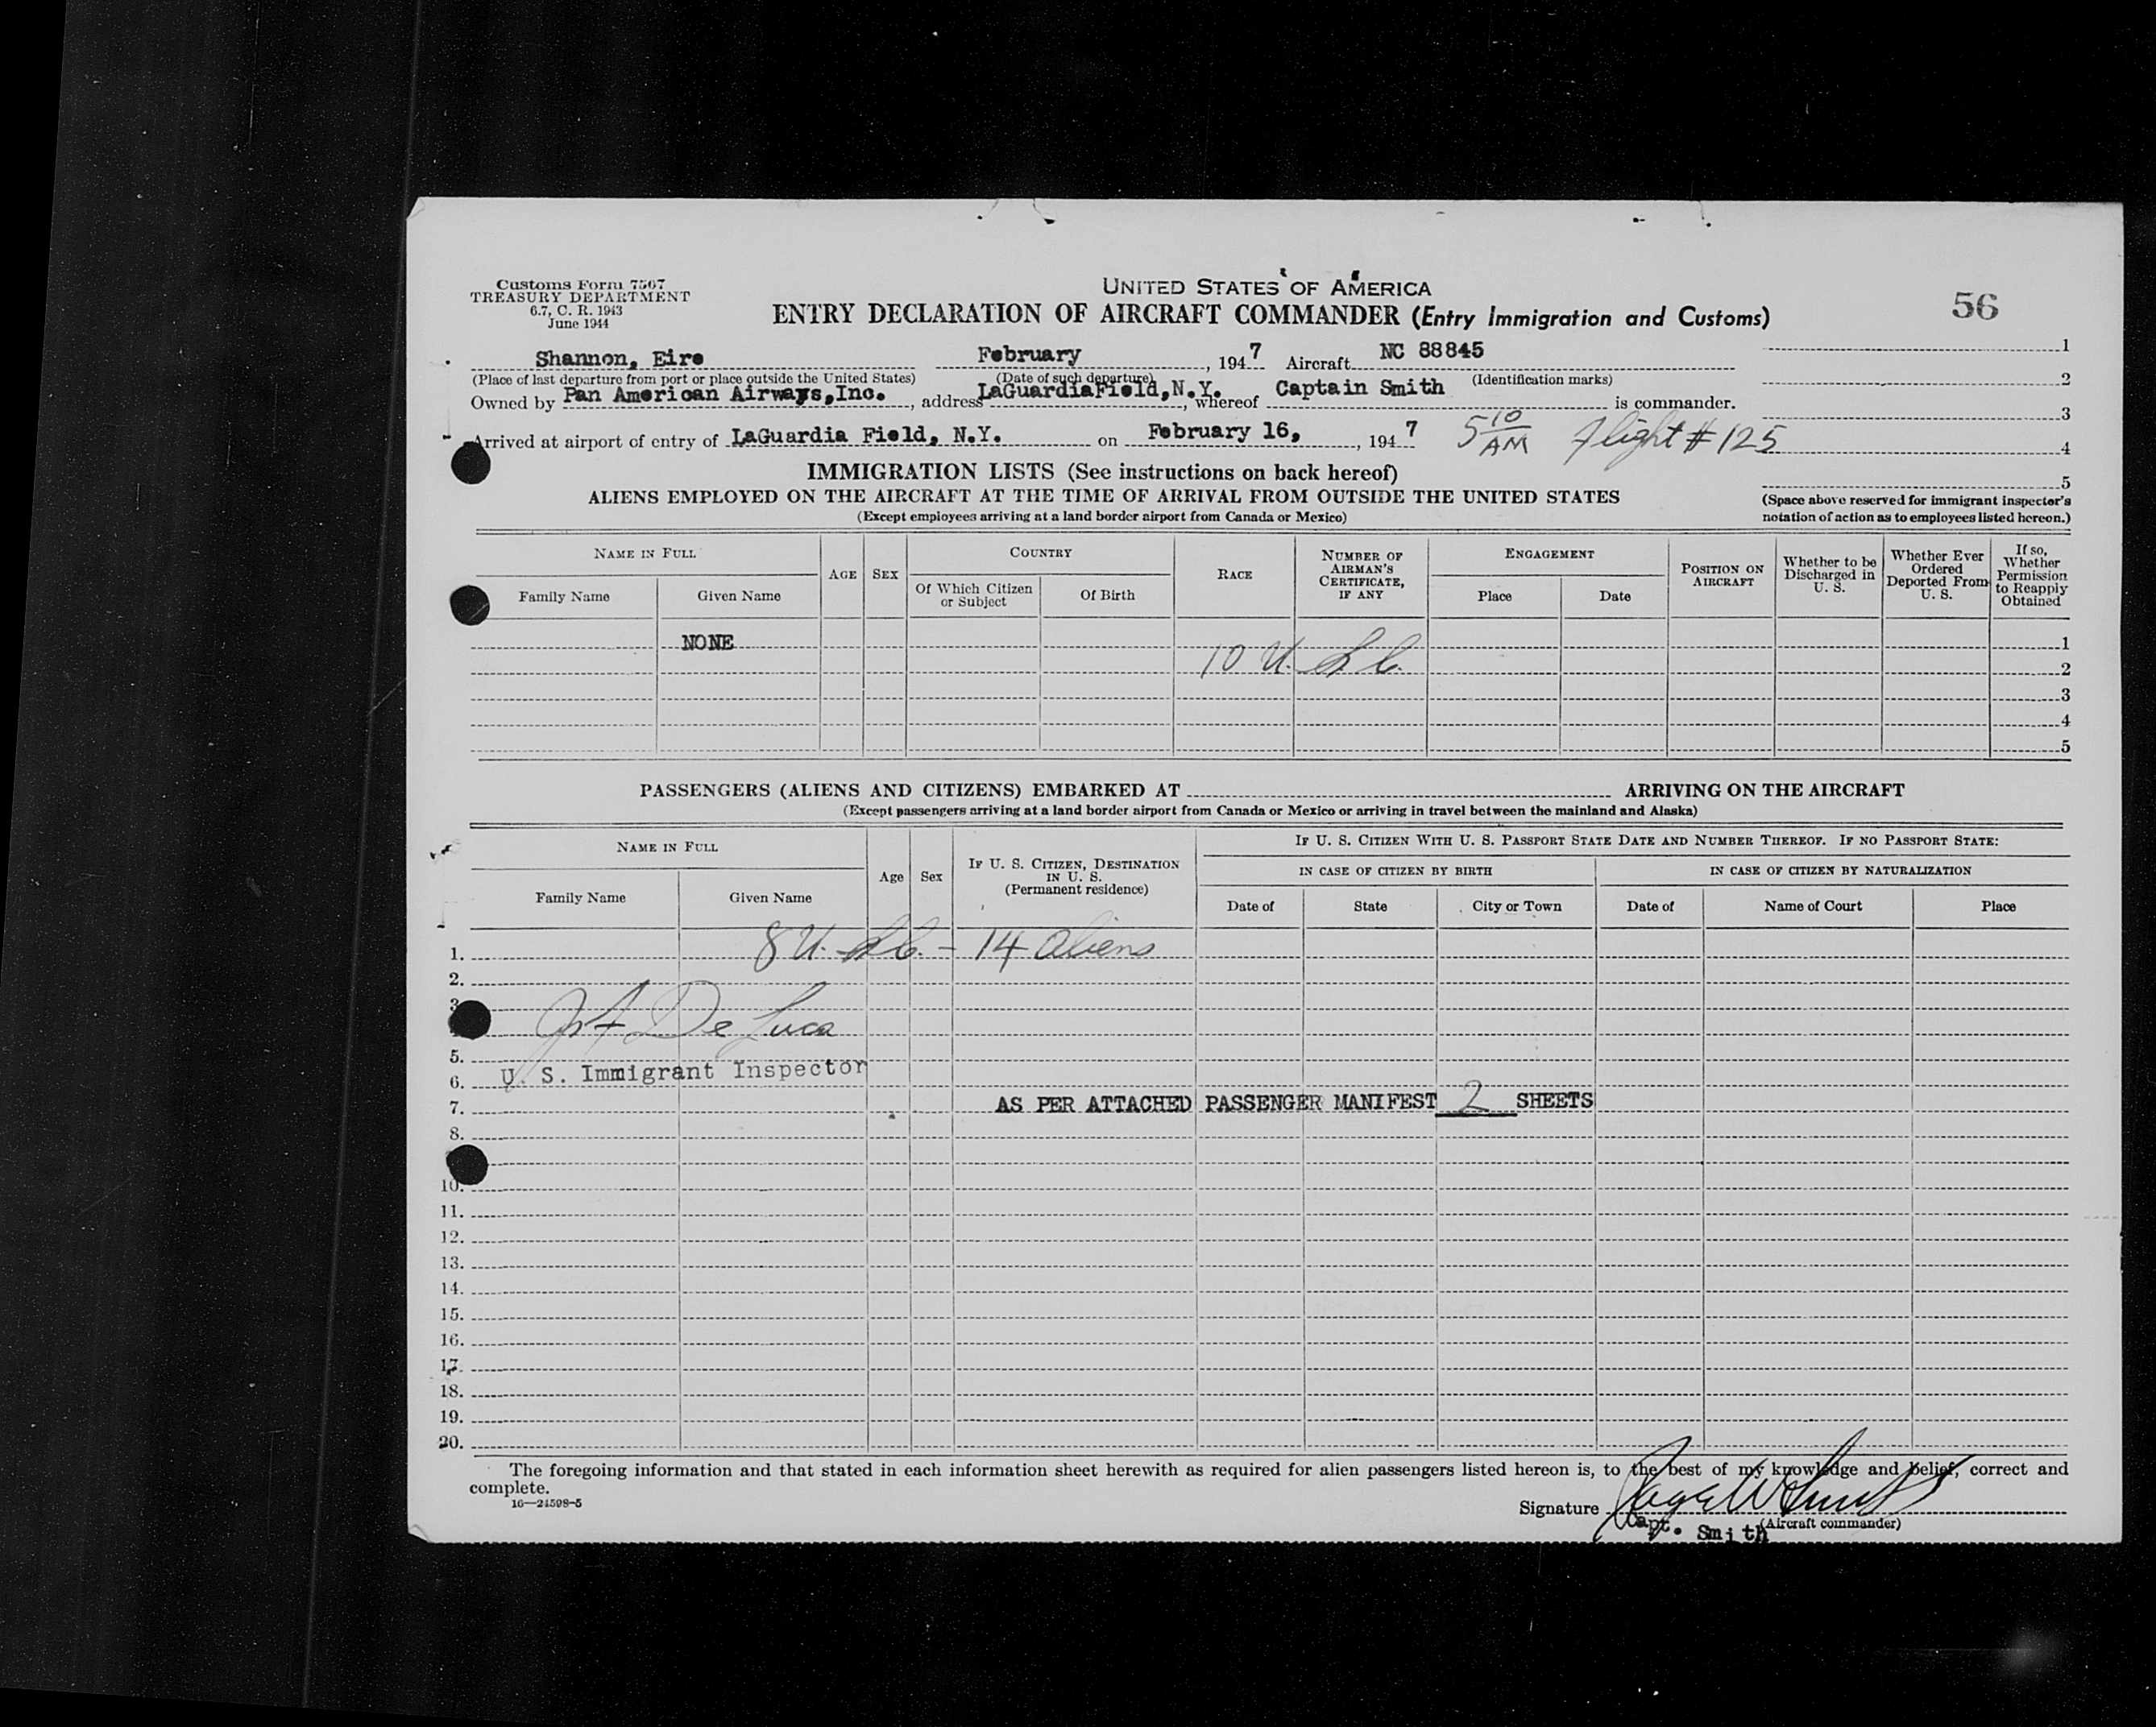 Customs Form 7507
TREASURY DEPARTMENT
6.7, C. R. 1943
June 1944
UNITED STATES OF AMERICA
ENTRY DECLARATION OF AIRCRAFT COMMANDER (Entry Immigration and Customs)
56
Shannon, Eire February, 1947 Aircraft NC 88845
(Place of last departure from port or place outside the United States) (Date of such departure) (Identification marks)
Owned by Pan American Airways,Inc., address LaGuardiaField,N.Y., whereof Captain Smith is commander.
Arrived at airport of entry of LaGuardia Field, N.Y. on February 16, 1947 5 10 AM Flight # 125
1
2
3
4
5
(Space above reserved for immigrant inspector's
notation of action as to employees listed hereon.)
IMMIGRATION LISTS (See instructions on back hereof)
ALIENS EMPLOYED ON THE AIRCRAFT AT THE TIME OF ARRIVAL FROM OUTSIDE THE UNITED STATES
(Except employees arriving at a land border airport from Canada or Mexico)
NAME IN FULL
Family Name Given Name
AGE SEX
COUNTRY
Of Which Citizen or Subject Of Birth
RACE
NUMBER OF AIRMAN'S CERTIFICATE, IF ANY
ENGAGEMENT
Place Date
POSITION ON AIRCRAFT
Whether to be Discharged in U. S.
Whether Ever Ordered Deported From U. S.
If so, Whether Permission to Reapply Obtained
NONE 1
10 U. S. C. 2
3
4
5
PASSENGERS (ALIENS AND CITIZENS) EMBARKED AT ARRIVING ON THE AIRCRAFT
(Except passengers arriving at a land border airport from Canada or Mexico or arriving in travel between the mainland and Alaska)
NAME IN FULL
Family Name Given Name
Age Sex
IF U. S. CITIZEN, DESTINATION IN U. S. (Permanent residence)
IF U. S. CITIZEN WITH U. S. PASSPORT STATE DATE AND NUMBER THEREOF. IF NO PASSPORT STATE:
IN CASE OF CITIZEN BY BIRTH IN CASE OF CITIZEN BY NATURALIZATION
Date of State City or Town Date of Name of Court Place
1. 8 U. S. C. - 14 aliens
2.
3.
De Luca
5.
6. U. S. Immigrant Inspector
7. AS PER ATTACHED PASSENGER MANIFEST 2 SHEETS
8.
10.
11.
12.
13.
14.
15.
16.
17.
18.
19.
20.
The foregoing information and that stated in each information sheet herewith as required for alien passengers listed hereon is, to the best of my knowledge and belief, correct and
complete.
16—24598-5
Signature
(Aircraft commander)
Capt. Smith